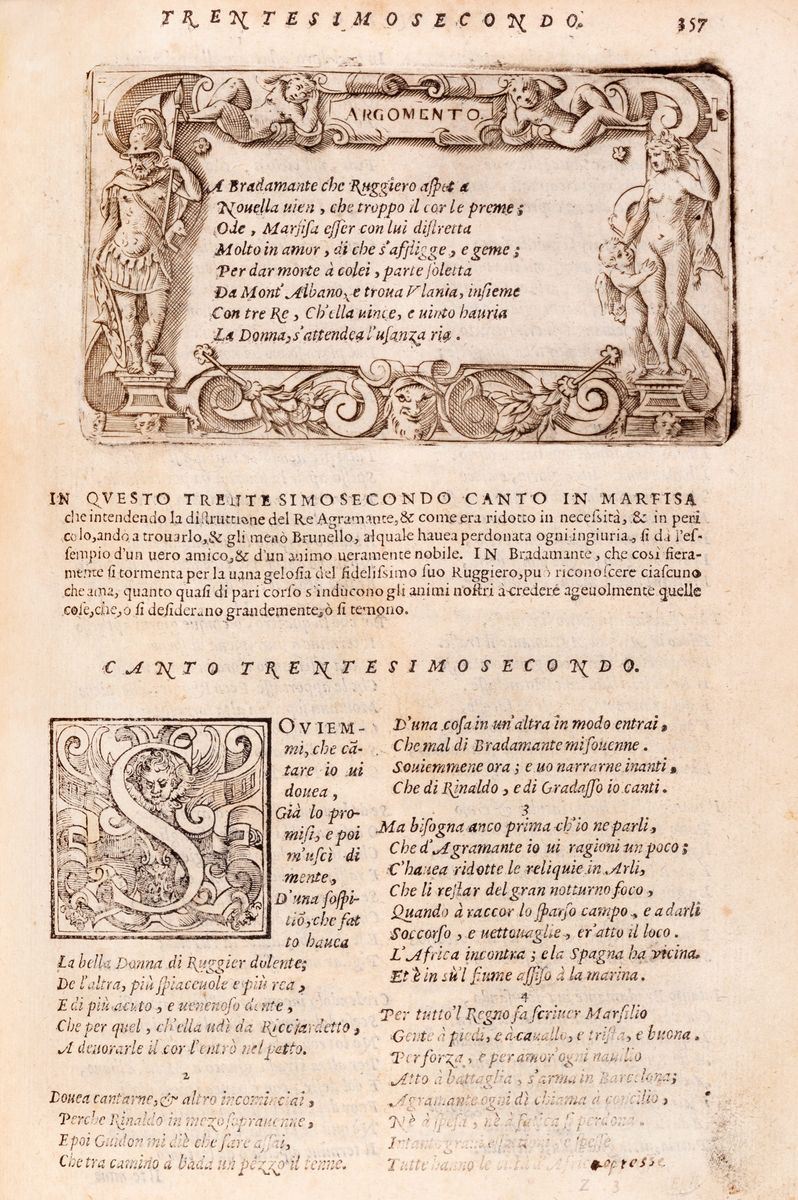 TRENTESIMOSECONDO. 357
ARGOMENTO.
A Bradamante che Ruggiero aſpet a
Nouella uien, che troppo il cor le preme;
Ode, Marfiſa eſſer con lui diſtretta
Molto in amor, di che s'affligge, e geme;
Per dar morte à colei, parte ſoletta
Da Mont' Albano, e troua Vlania, inſieme
Con tre Re, Ch'ella uince, e uinto hauria
La Donna, s'attendea l'uſanza ria.
IN QVESTO TRENTESIMOSECONDO CANTO IN MARFISA
che intendendo la diſtruttione del Re Agramante, & come era ridotto in neceſsità, & in peri
colo, andò a trouarlo, & gli menò Brunello, alquale hauea perdonata ogni ingiuria, ſi dà l'eſ-
ſempio d'un uero amico, & d'un animo ueramente nobile. IN Bradamante, che cosi fiera-
mente ſi tormenta per la uana geloſia del fideliſsimo ſuo Ruggiero, può riconoſcere ciaſcuno
che ama, quanto quaſi di pari corſo s'inducono gli animi noſtri à credere ageuolmente quelle
coſe, che, o ſi deſiderano grandemente, ò ſi temono.
CANTO TRENTESIMOSECONDO.
SOVIEM-
mi, che cã-
tare io ui
douea,
Già lo pro-
miſi, e poi
m'uſcì di
mente,
D'una ſoſpi-
tiõ, che fat
to hauea
La bella Donna di Ruggier dolente;
De l'altra, più ſpiaceuole e più rea,
E di più acuto, e uenenoſo dente,
Che per quel, ch'ella udì da Ricciardetto,
A deuorarle il cor l'entrò nel petto.
2
Douea cantarne, & altro incominciai,
Perche Rinaldo in mezo ſoprauenne,
E poi Guidon mi diè che fare aſſai,
Che tra camino à bada un pezzo il tenne.
D'una coſa in un'altra in modo entrai,
Che mal di Bradamante mi ſouenne.
Souiemmene ora; e uo narrarne inanti,
Che di Rinaldo, e di Gradaſſo io canti.
3
Ma biſogna anco prima ch'io ne parli,
Che d'Agramante io ui ragioni un poco;
C'hauea ridotte le reliquie in Arli,
Che li reſtar del gran notturno foco,
Quando à raccor lo ſparſo campo, e a darli
Soccorſo, e uettouaglie, er'atto il loco.
L'Africa incontra; e la Spagna ha vicina.
Et è in sù'l fiume aſſiſo à la marina.
4
Per tutto'l Regno fa ſcriuer Marſilio
Gente à piedi, e à cauallo, e triſta, e buona.
Per forza, e per amor ogni nauilio
Atto à battaglia, s'arma in Barcelona;
Agramante ogni dì chiama à concilio,
Nè à ſpeſa, nè à fatica ſi perdona.
Intanto graui eſſattioni, e ſpeſſe
Tutte hanno le città d'Africa oppresse
Z 3